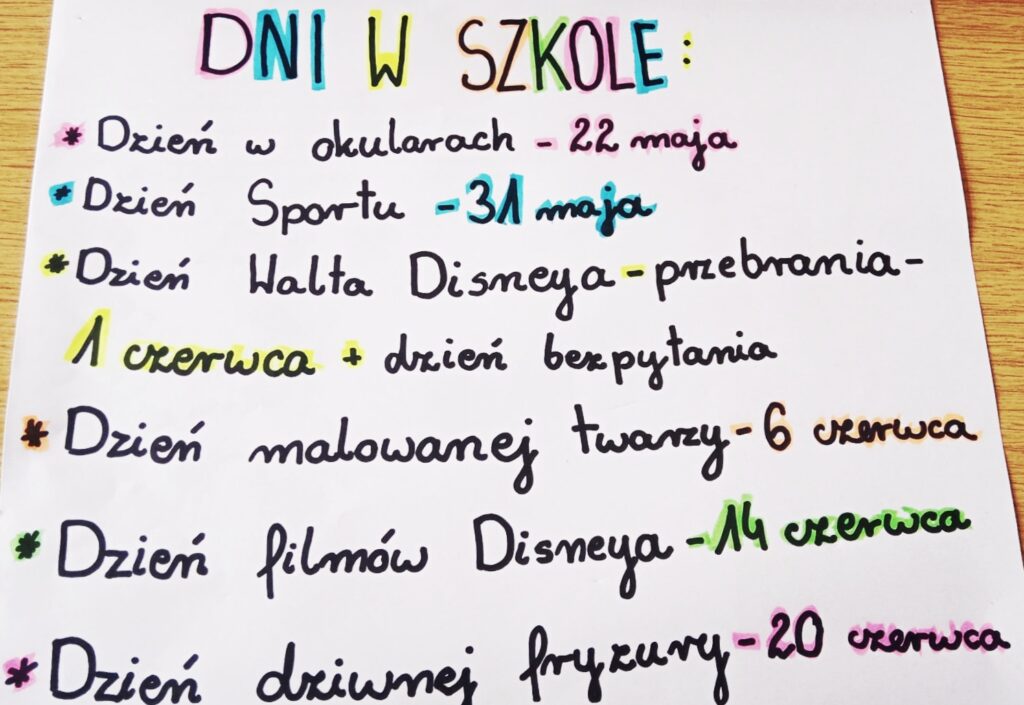 DNI W SZKOLE:
* Dzień w okularach - 22 maja
* Dzień Sportu - 31 maja
* Dzień Walta Disneya - przebrania -
1 czerwca + dzień bezpytania
* Dzień malowanej twarzy - 6 czerwca
* Dzień filmów Disneya - 14 czerwca
* Dzień dziwnej fryzury - 20 czerwca